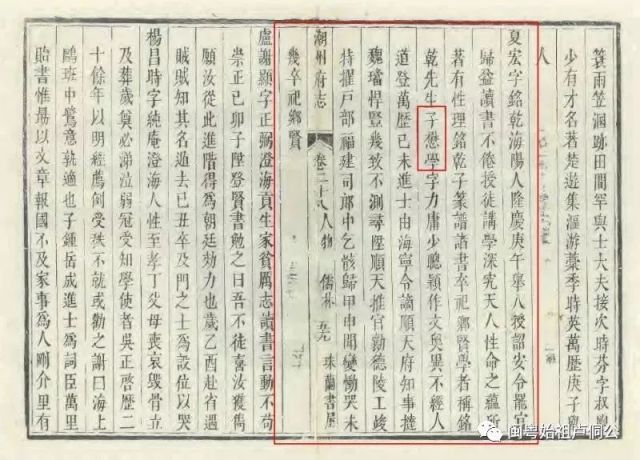 蓑雨笠溷跡田間罕與士大夫接次時芬字叔
少有才名著楚遊集漚游藁季時英萬歷庚子
人
夏宏字銘乾海陽人隆慶庚午舉人授詔安令罷官
歸益讀書不倦授徒講學深究天人性命之蘊所
著有性理銘乾子篆譜諸書卒祀鄉賢學者稱銘
乾先生子懋學字力庸少聰穎作文奧異不經人
道登萬歷己未進士由海寧令謫順天府知事
魏璫悍豎幾致不測尋陞順天推官勷德陵工竣
特擢戶部福建司郎中乞骸歸甲申聞變慟哭未
幾卒祀鄉賢
潮州府志 卷二十八 人物 儒林 珠蘭書屋
盧謝顯字正弼澄海貢生家貧厲志讀書言動不苟
崇正己卯子陞登賢書勉之曰吾不徒喜汝獲雋
願汝從此進階得為朝廷効力也歲乙酉赴省遇
賊賊知其名過去已丑卒及門之士為設位以哭
楊昌時字純庵澄海人性至孝丁父母喪哀毀骨立
及葬歲奠必涕泣弱冠受知學使者吳正啓歷二
十餘年以明經薦例受秩不就或勸之謝曰海上
鷗班中鷺意執適也子鍾岳成進士為詞臣萬里
貽書惟勗以文章報國不及家事為人剛介里有
闽粤始祖卢侗公